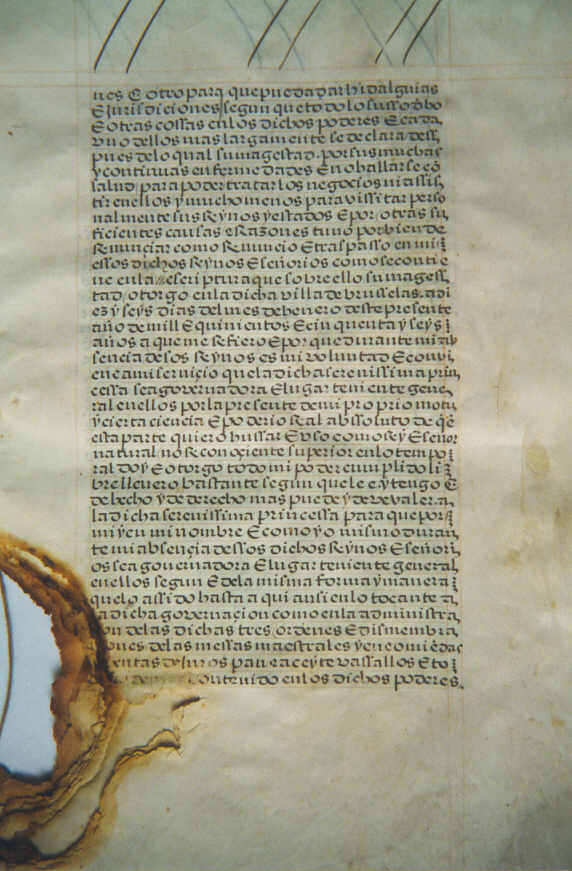 nes E otro para que pueda dar hidalguias
E Jurisdiciones segun que todo lo susso dho
E otras cossas en los dichos poderes E cada
vno dellos mas largamente se declara dess
pues de lo qual su magestad. por sus muchas
y continuas enfermedades E no hallarse cō
salud, para poder tratar los negocios ni assis
tir en ellos y mucho menos para vissitar perso
nalmente sus Reynos y estados E por otras su
ficientes causas e Razones tuuo por bien de
Renunciar como Renuncio E traspasso en mi
essos dichos Reynos E señorios como se contie
ne en la escriptura que sobre ello su magess
tad, otorgo en la dicha villa de brusselas. a di
ez y seys dias del mes de henero deste presente
año de mill E quinientos E cinquenta y seys
años a que me refiero E por que durante mi ab
sencia de sos Reynos es mi voluntad E conui
ene a mi seruiçio que la dicha serenissima prin
cessa sea gouernadora E lugar teniente gene
ral en ellos por la presente de mi proprio motu
y cierta ciencia E poderio Real absoluto de q̄
esta parte quiero hussar E vso como Rey E señor
natural no Reconoçiente superior en lo tempo
ral doy E otorgo todo mi poder cumplido li
bre llenero bastante segun que le e y tengo E
de hecho y de derecho mas puede y deve valer. a
la dicha serenissima princessa para que por
mi y en mi nombre E como yo mismo duran
te mi absençia dessos dichos Reynos E señori
os sea gouernadora E lugar teniente general
en ellos segun E de la misma forma y manera
que lo assido hasta aqui ansi en lo tocante a
la dicha gouernaçion como en la administra
çion de las dichas tres, ordenes E dismembra
çiones de las messas maestrales y encomiēdas
Rentas de juros pan e aceyte vassallos E to
contenido en los dichos poderes.